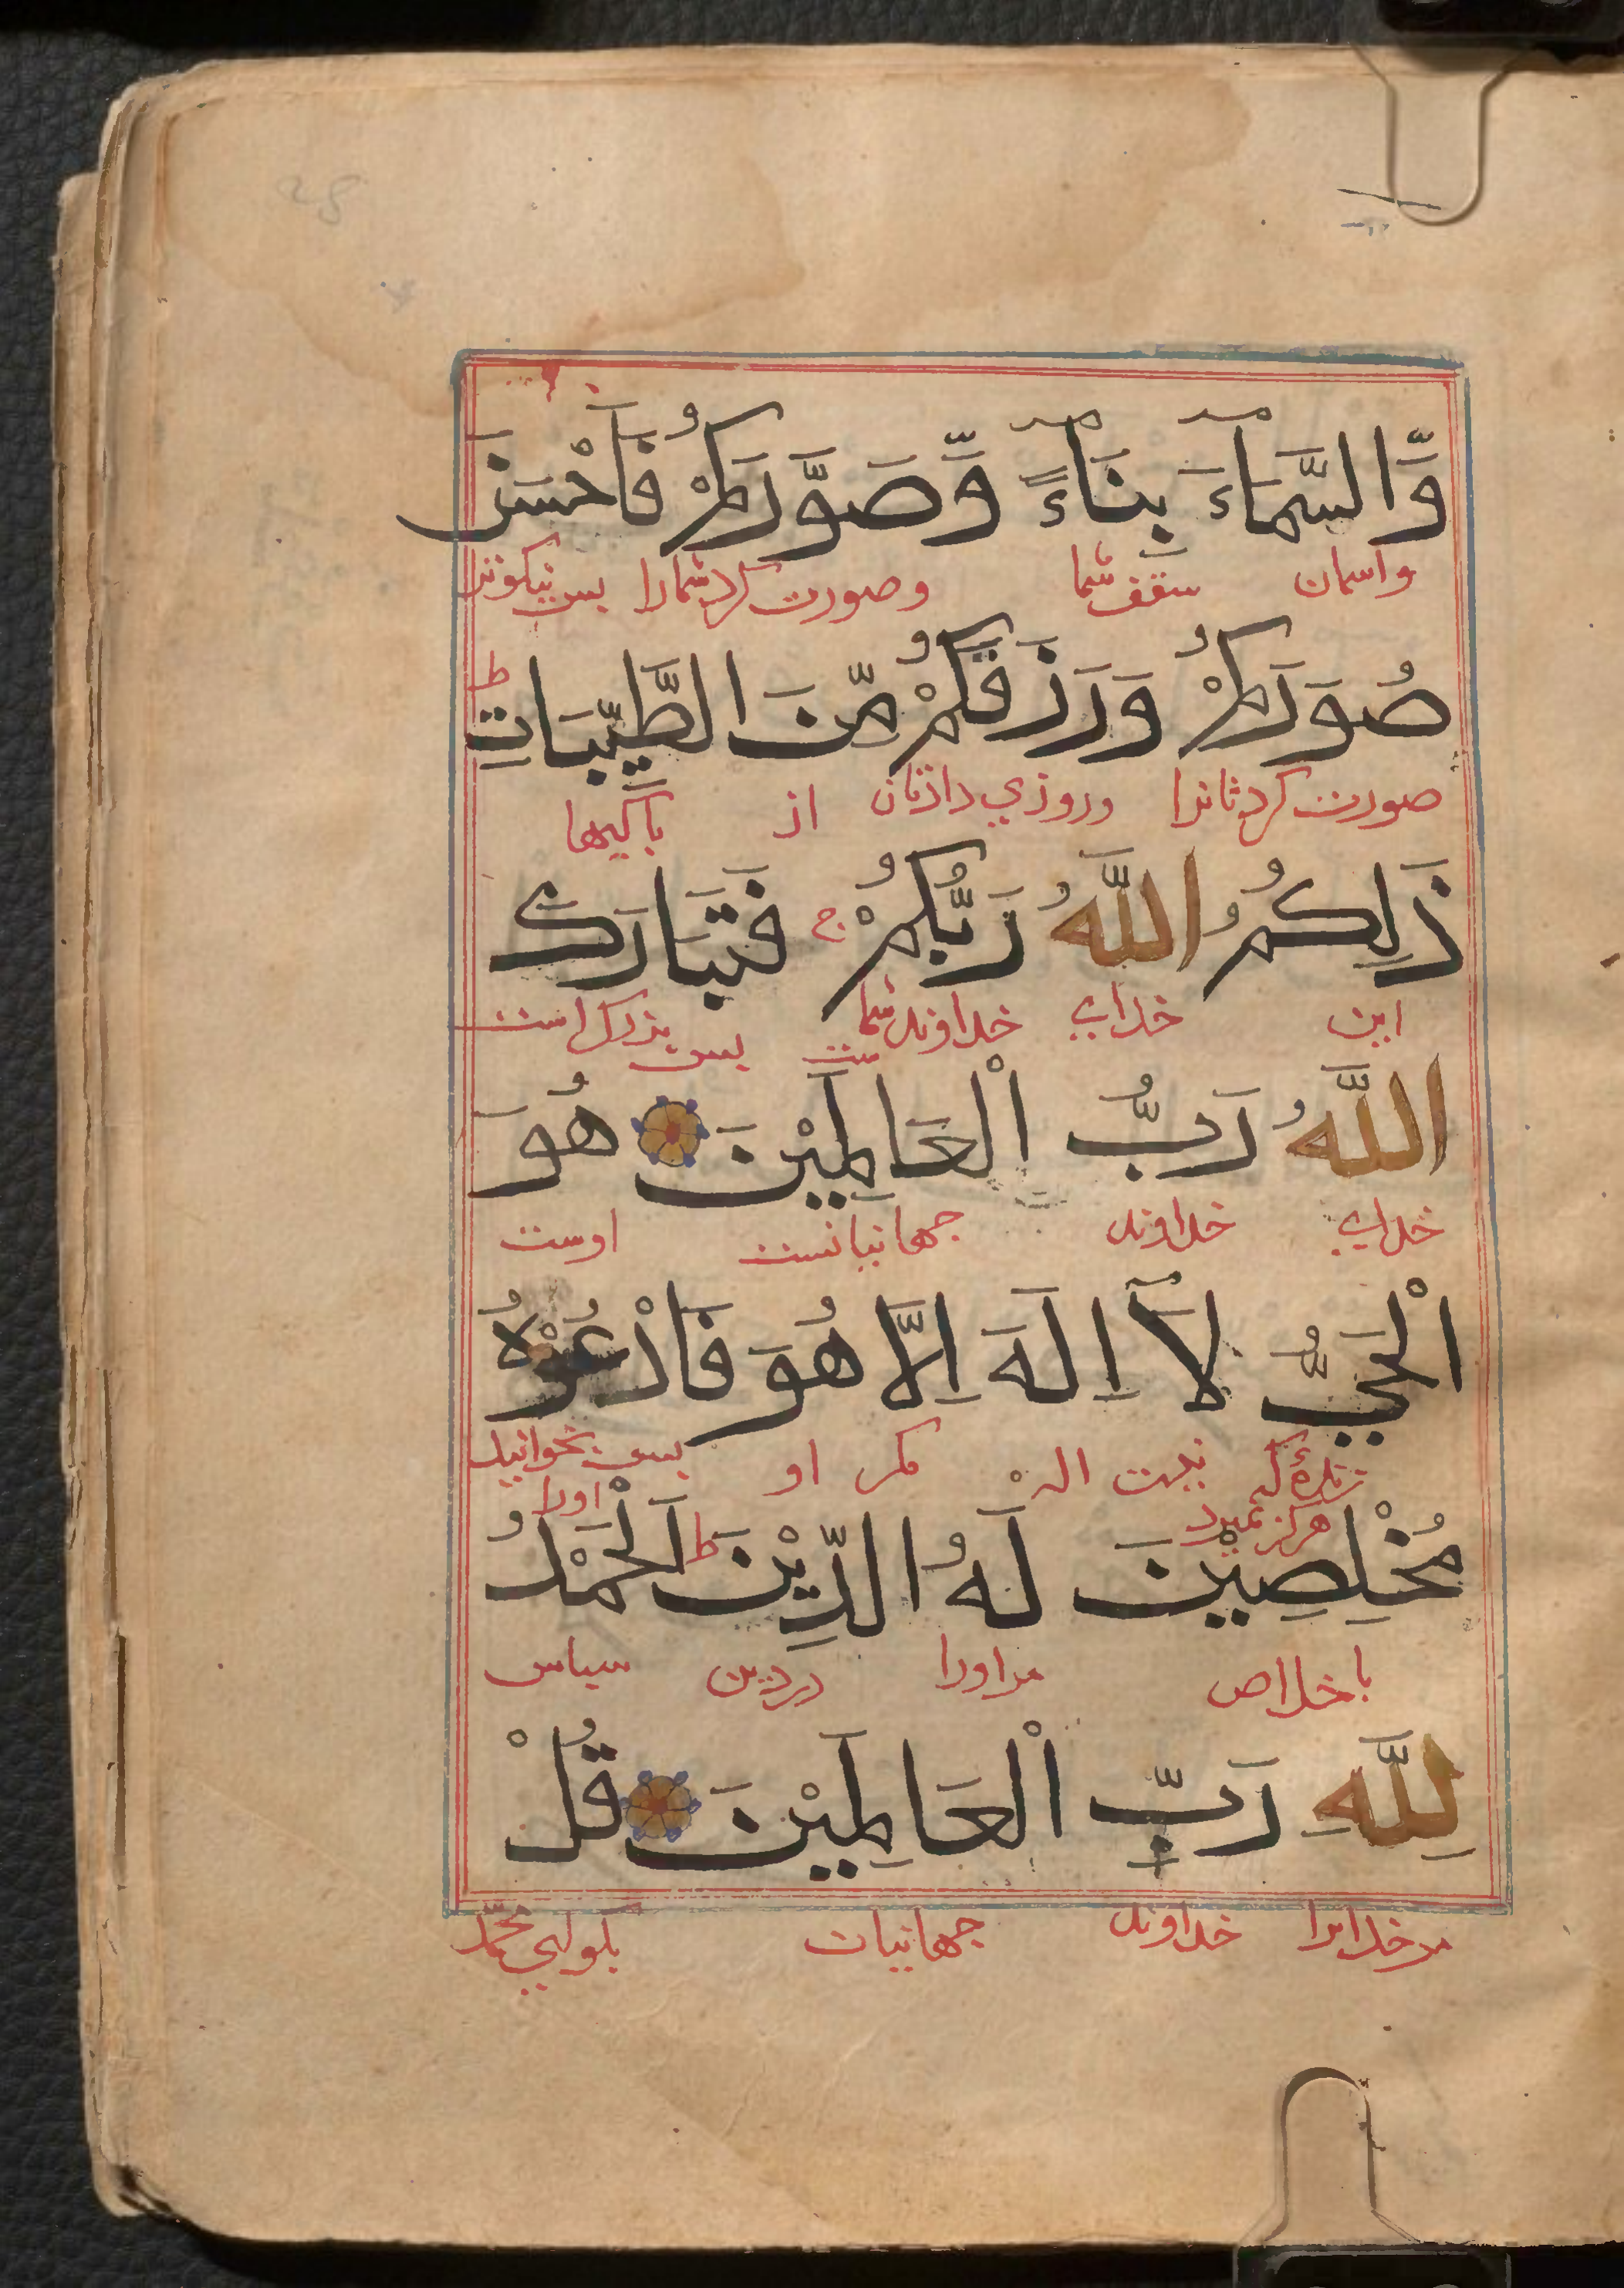 وَّالسَّمَآءَ بِنَآءً وَّصَوَّرَكُمْ فَأَحْسَنَ
واسمان سقف شما وصورت كرد شمارا بس نيكوتر
صُوَرَكُمْ وَرَزَقَكُمْ مِّنَ الطَّيِّبَاتِ ط
صورت كرد شانرا وروزي دادتان از باكيها
ذَلِكُمُ اللَّهُ رَبُّكُمْ ج فَتَبَارَكَ
اين خداي خداوند شما ست بس بزرك است
اللَّهُ رَبُّ الْعَالَمِيْنَ هُوَ
خداي خداوند جهانيانست اوست
الْحَيُّ لَآ اِلَهَ اِلَّا هُوَ فَادْعُوْهُ
زندۀ كه هركز نميرد نيست اله مكر او بس بخوانيد اورا
مُخْلِصِيْنَ لَهُ الدِّيْنَ ط اَلْحَمْدُ
باخلاص مر اورا در دين سباس
لِلَّهِ رَبِّ الْعَالَمِيْنَ قُلْ
مر خدايرا خداوند جهانيان بكو اي محمّد